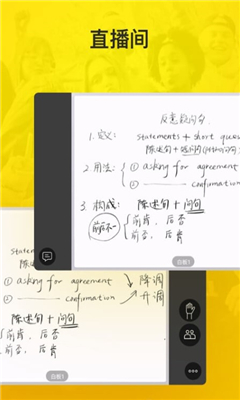 直播间
反意疑问句
1. 定义:
statements + short ques
陈述句 +
2. 用法:
① asking for agreement
② —— confirmation
3. 构成:
陈述句 + 问句
前后不一
前肯, 后否
前否, 后肯
白板1
statements
陈述句 +
① asking for agreement
② —— confirmation
降调
升调
陈述句 + 问句
前肯, 后否
前否, 后肯
白板1